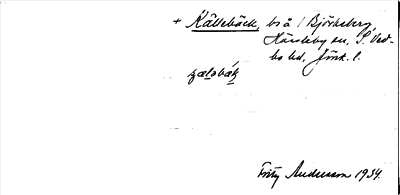 + Källebäck, bså i Björkeberg
Härsleby sn, S. Ved-
bo hd, Jönk. l.
Fritz Andersson 1934.